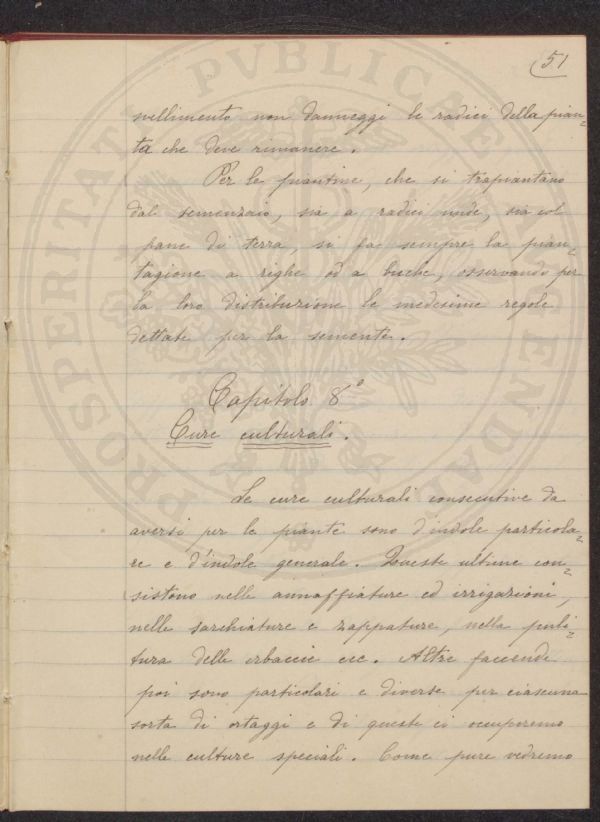 51
svellimento non danneggi le radici della pian-
ta che deve rimanere.
Per le piantine, che si trapiantano
dal semenzaio, sia a radici nude, sia col
pane di terra, si fa sempre la pian-
tagione a righe od a buche, osservando per
la loro distribuzione le medesime regole
dettate per la semente.
Capitolo 8°
Cure culturali.
Le cure culturali consecutive da
aversi per le piante sono d'indole particola-
re e d'indole generale. Queste ultime con-
sistono nelle annaffiature ed irrigazioni,
nelle sarchiature e zappature, nella puli-
tura delle erbaccie ecc. Altre faccende
poi sono particolari e diverse per ciascuna
sorta di ortaggi e di queste ci occuperemo
nelle culture speciali. Come pure vedremo
PROSPERITATI PVBLICAE AVGENDAE